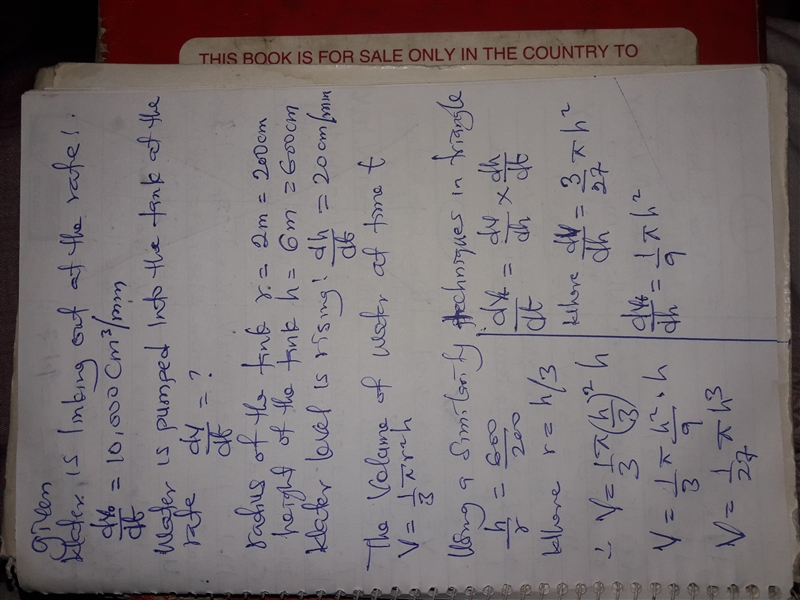 THIS BOOK IS FOR SALE ONLY IN THE COUNTRY TO
given
Water is linking out at the rate!.
dV₀/dt = 10,000 cm³/min
Water is pumped into the tank at the
rate dV/dt = ?
radius of the tank r = 2m = 200cm
height of the tank h = 6m = 600cm
Water level is rising! dh/dt = 20cm/min
The Volume of water at time t
V = 1/3 πr²h
Using a Similarity techniques in triangle
h/r = 600/200
Where r = h/3
∴ V = 1/3 π(h/3)² h
V = 1/3 π h²/9 · h
V = 1/27 π h³
dV₀/dt = dV/dh × dh/dt
Where dV/dh = 3/27 π h²
dV₀/dh = 1/9 π h²